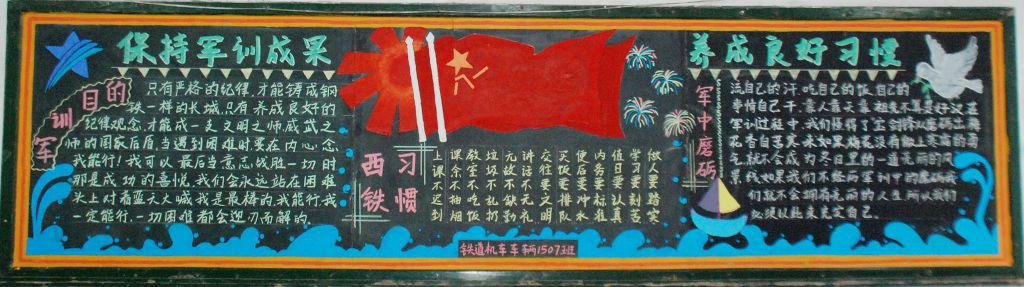 保持军训成果
军训目的
只有严格的纪律,才能铸成钢
铁一样的长城,只有养成良好的
纪律观念,才能成一支文明之师,威武之
师的国家后盾,当遇到困难时要在内心念
我能行!我可以,最后当意志战胜一切时
那是成功的喜悦,我们会永远站在困难
头上对着蓝天大喊我是最棒的,我能行,我
一定能行,一切困难都会迎刃而解的.
八一
西铁
习惯
做人要踏实
学习要刻苦
值日要认真
内务要标准
便后要冲水
买饭要排队
交往要文明
讲话不无礼
无故不缺勤
垃圾不乱扔
教室不吃饭
课余不抽烟
上课不迟到
养成良好习惯
军中磨砺
流自己的汗,吃自己的饭,自己的
事情自己干,靠人靠天靠祖先不算是好汉,在
军训过程中,我们懂得了宝剑锋从磨砺出梅
花香自苦寒来,如果梅花没有
气,就不会成为冬日里的一道亮丽的风
景线,如果我们不经历军训中的磨砺我
们就不会拥有亮丽的人生,所以我们
必须以此来坚定自己.
铁道机车车辆1507班